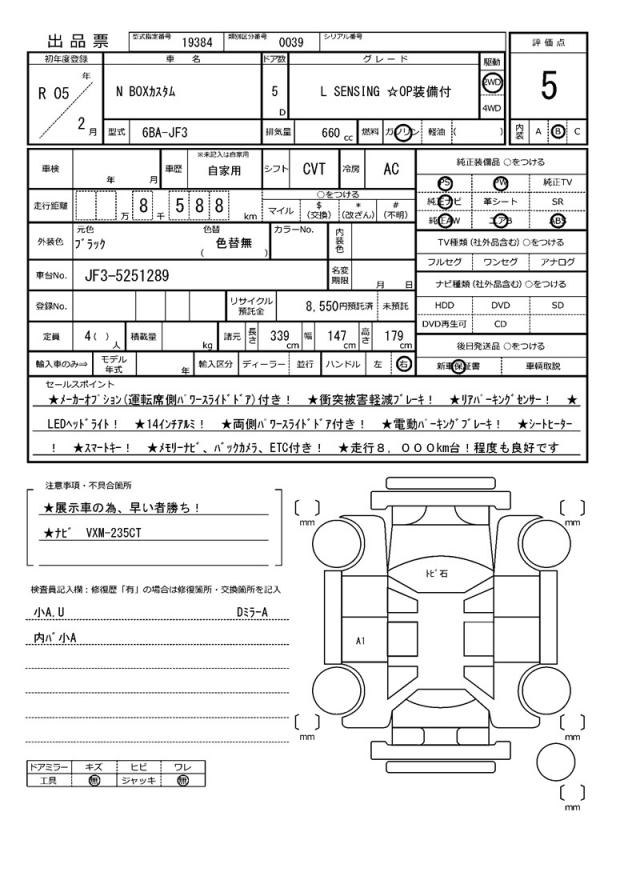 出品票 型式指定番号 19384 類別区分番号 0039 シリアル番号
評価点
5
内装 A B C
初年度登録 車名 ドア数 グレード 駆動
R 05 年 2 月 N BOXカスタム 5 D L SENSING ☆OP装備付 2WD
4WD
型式 6BA-JF3 排気量 660 cc 燃料 ガソリン 軽油 ( )
車検 年 月 車歴 ※未記入は自家用 自家用 シフト CVT 冷房 AC
走行距離 万 8 千 5 8 8 km
○をつける
マイル $(交換) *(改ざん) #(不明)
外装色 元色 ブラック 色替 色替無 ( ) カラーNo. 内装色
車台No. JF3-5251289 名変期限 月 日
登録No. リサイクル預託金 8,550円預託済 未預託
定員 4( ) 人 積載量 kg 諸元 長さ 339 cm 幅 147 cm 高さ 179 cm
輸入車のみ⇒ モデル年式 年 輸入区分 ディーラー 並行 ハンドル 左 右
純正装備品 ○をつける
PS PW 純正TV
純正ナビ 革シート SR
純正AW エアB ABS
TV種類(社外品含む)○をつける
フルセグ ワンセグ アナログ
ナビ種類(社外品含む)○をつける
HDD DVD SD
DVD再生可 CD
後日発送品 ○をつける
新車保証書 車輌取説
セールスポイント
★メーカーオプション(運転席側パワースライドドア)付き! ★衝突被害軽減ブレーキ! ★リアパーキングセンサー! ★
LEDヘッドライト! ★14インチアルミ! ★両側パワースライドドア付き! ★電動パーキングブレーキ! ★シートヒーター
! ★スマートキー! ★メモリーナビ、バックカメラ、ETC付き! ★走行8,000km台!程度も良好です
注意事項・不具合箇所
★展示車の為、早い者勝ち!
★ナビ VXM-235CT
検査員記入欄:修復歴「有」の場合は修復箇所・交換箇所を記入
小A.U DミラーA
内バ小A
ドアミラー キズ ヒビ ワレ
工具 無 ジャッキ 無
mm
mm
トビ石
A1
mm
mm
mm